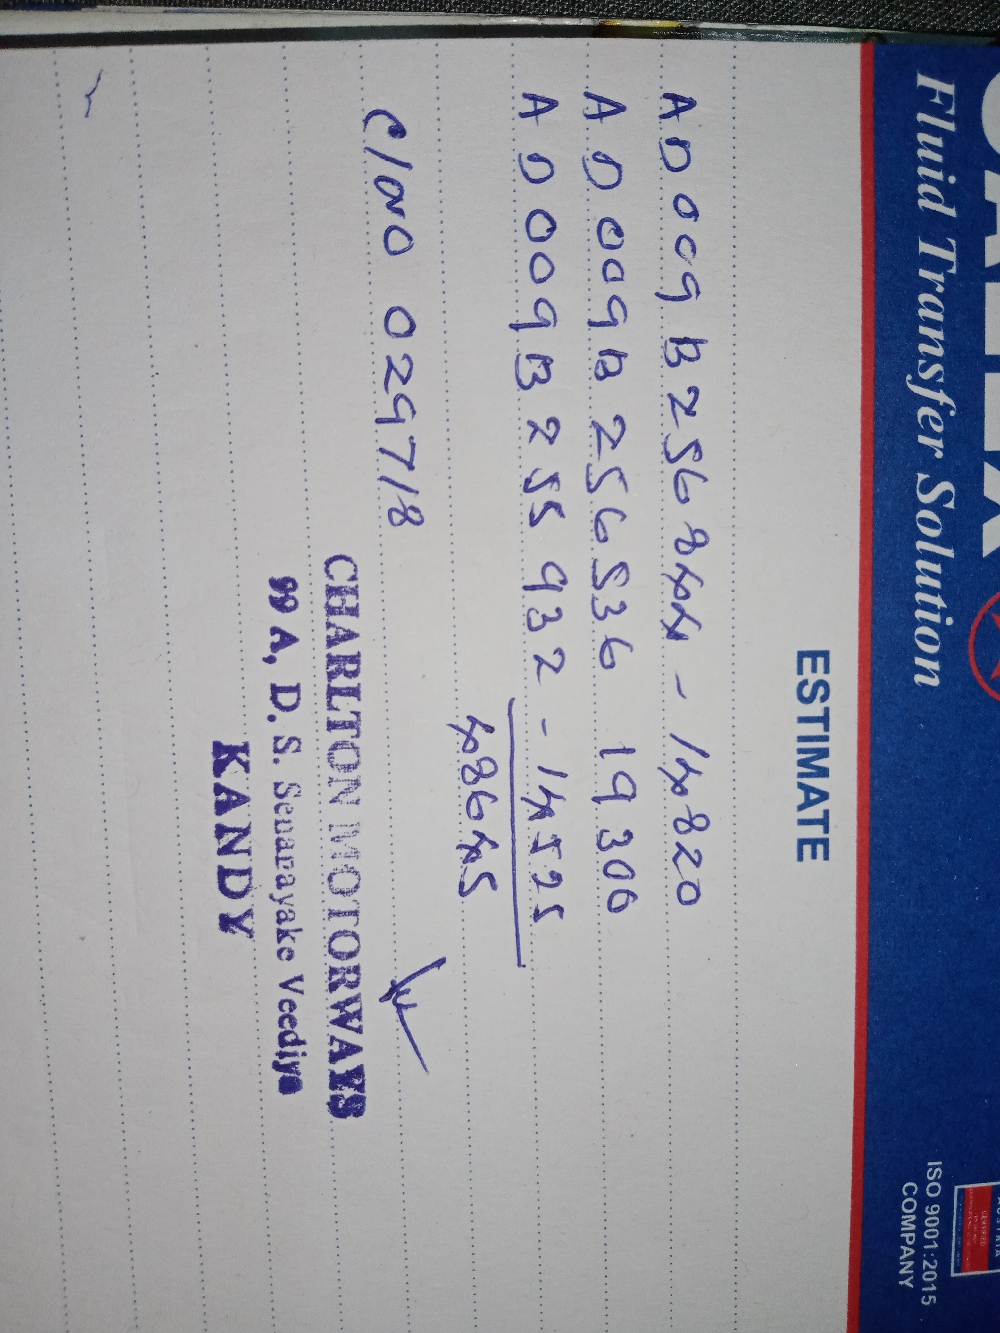 Fluid Transfer Solution
ISO 9001:2015
COMPANY
ESTIMATE
AD009B256844 - 14820
AD009B256536 19300
AD009B255932 - 14525
48645
C/NO 029718
CHARLTON MOTORWAYS
99 A, D. S. Senanayake Veediya
KANDY